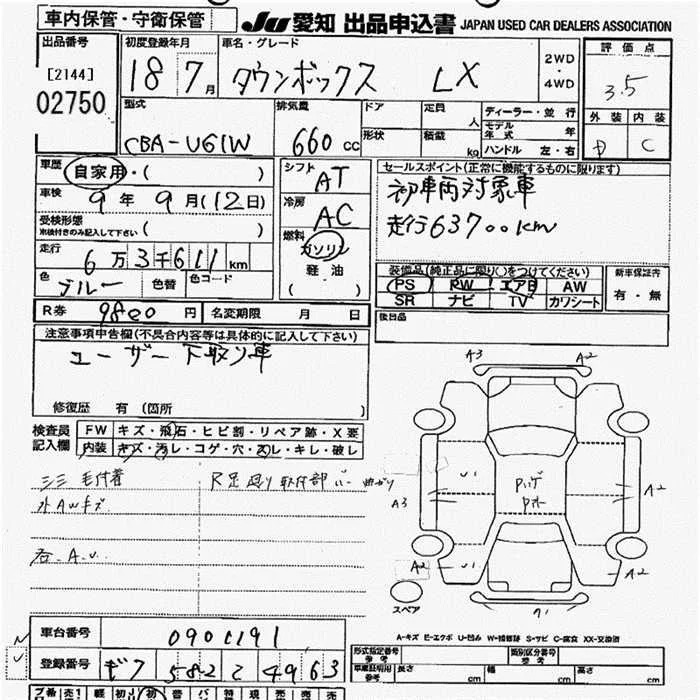 車内保管・守衛保管
JU 愛知 出品申込書 JAPAN USED CAR DEALERS ASSOCIATION
出品番号 初度登録年月 車名・グレード 評価点
[2144] 18 7月 タウンボックス LX 2WD・4WD 3.5
02750
型式 排気量 ドア 定員 人 ディーラー・並行 外装 内装
CBA-U61W 660cc 形状 積載 kg モデル年式 年 C
ハンドル 左・右
車歴 自家用・( ) シフト AT セールスポイント(正常に機能するものに限ります)
車検 9年9月(12日) 冷房 AC 初車両対象車
受検形態 ※検付きのみ記入して下さい ( ) 走行63700km
走行 6万3千611km 燃料 ガソリン
軽油 ( )
色 ブルー 色替 色コード
装備品(純正品に限り()をつけてください) 新車保証書
PS PW エアB AW 有・無
SR ナビ TV カワシート
R券 9800円 名変期限 月 日
後日品
注意事項申告欄(不具合内容等は具体的に記入して下さい)
ユーザー下取り車
修復歴 有(箇所 )
検査員記入欄 FW キズ・飛石・ヒビ割・リペア跡・X要
内装 キズ・汚レ・コゲ・穴・スレ・キレ・破レ
A3 A2
A3 A2
A2 A2
スペア
A-キズ E-エクボ U-凹み W-補修跡 S-サビ C-腐食 XX-交換済
車台番号 0900191
登録番号 582 4963
形式指定番号 参考 類別区分番号 参考
車庫証明用 参考 長さ cm 幅 cm 高さ cm